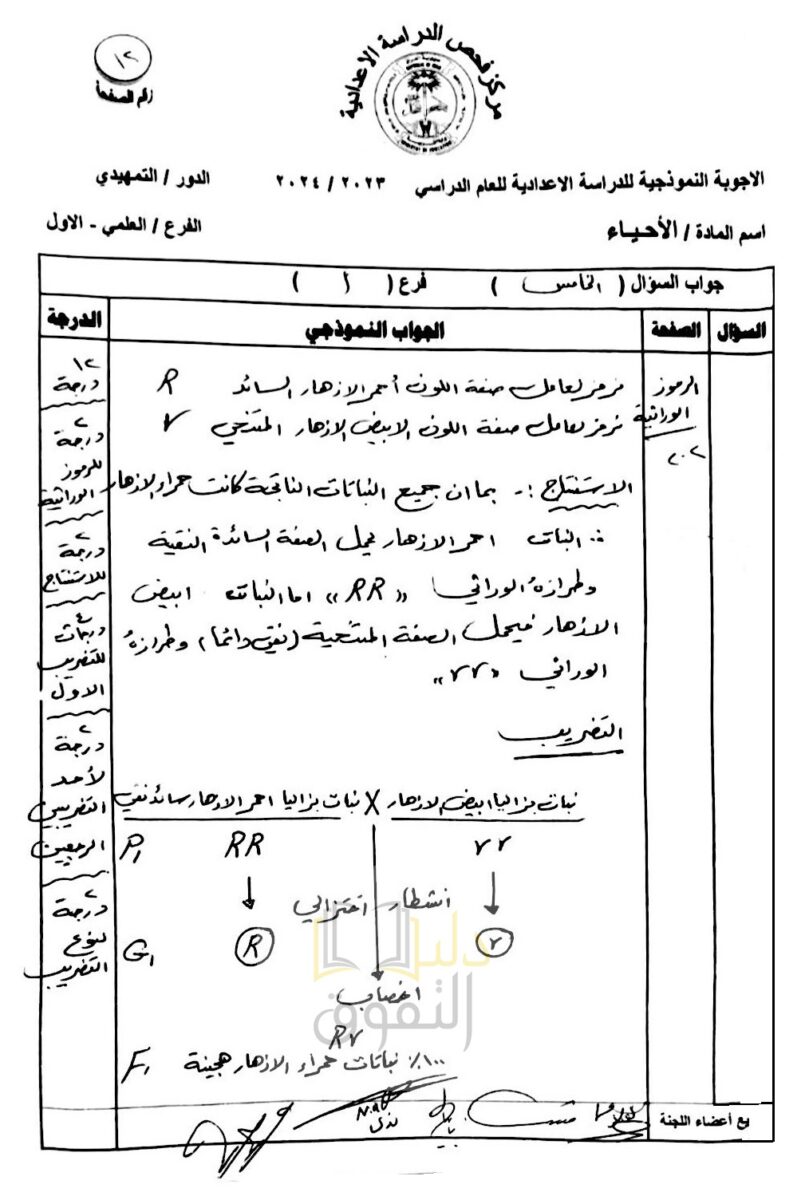 ١٢
رقم الصفحة
مركز فحص الدراسة الاعدادية
الاجوبة النموذجية للدراسة الاعدادية للعام الدراسي ٢٠٢٣ / ٢٠٢٤ الدور / التمهيدي
اسم المادة / الأحياء الفرع / العلمي - الاول
جواب السؤال ( الخامس ) فرع ( أ )
السؤال الصفحة الجواب النموذجي الدرجة
الرموز الوراثية
٢٠٢
نرمز لعامل صفة اللون أحمر الازهار السائد R
نرمز لعامل صفة اللون الابيض الازهار المتنحي r
الاستنتاج :- بما ان جميع النباتات الناتجة كانت حمراء الازهار
∴ النبات احمر الازهار يحمل الصفة السائدة النقية
وطرازه الوراثي «RR» اما النبات ابيض
الازهار فيحمل الصفة المتنحية (نقي دائما) وطرازه
الوراثي «rr»
التضريب
نبات بزاليا ابيض الازهار X نبات بزاليا احمر الازهار سائد نقي
P1 RR rr
انشطار اختزالي
G1 R r
اخصاب
Rr
F1 ١٠٠٪ نباتات حمراء الازهار هجينة
١٢
درجة
٢
درجة
للرموز
الوراثية
٢
درجة
للاستنتاج
٤
درجات
للتضريب
الاول
٢
درجة
لأحد
التضريبين
الرجعيين
٢
درجة
لنوع
التضريب
دليل
التفوق
يع أعضاء اللجنة